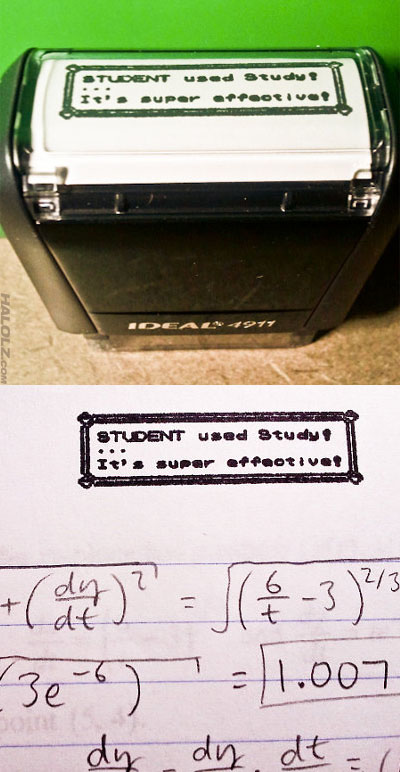 STUDENT used Study!
...
It's super effective!
IDEAL 4911
HALOLZ.COM
STUDENT used Study!
...
It's super effective!
+ (dy/dt)² = √(6/t - 3)^2/3
(3e^-6) = 1.007
point (5, 4).
dy = dy . dt = (